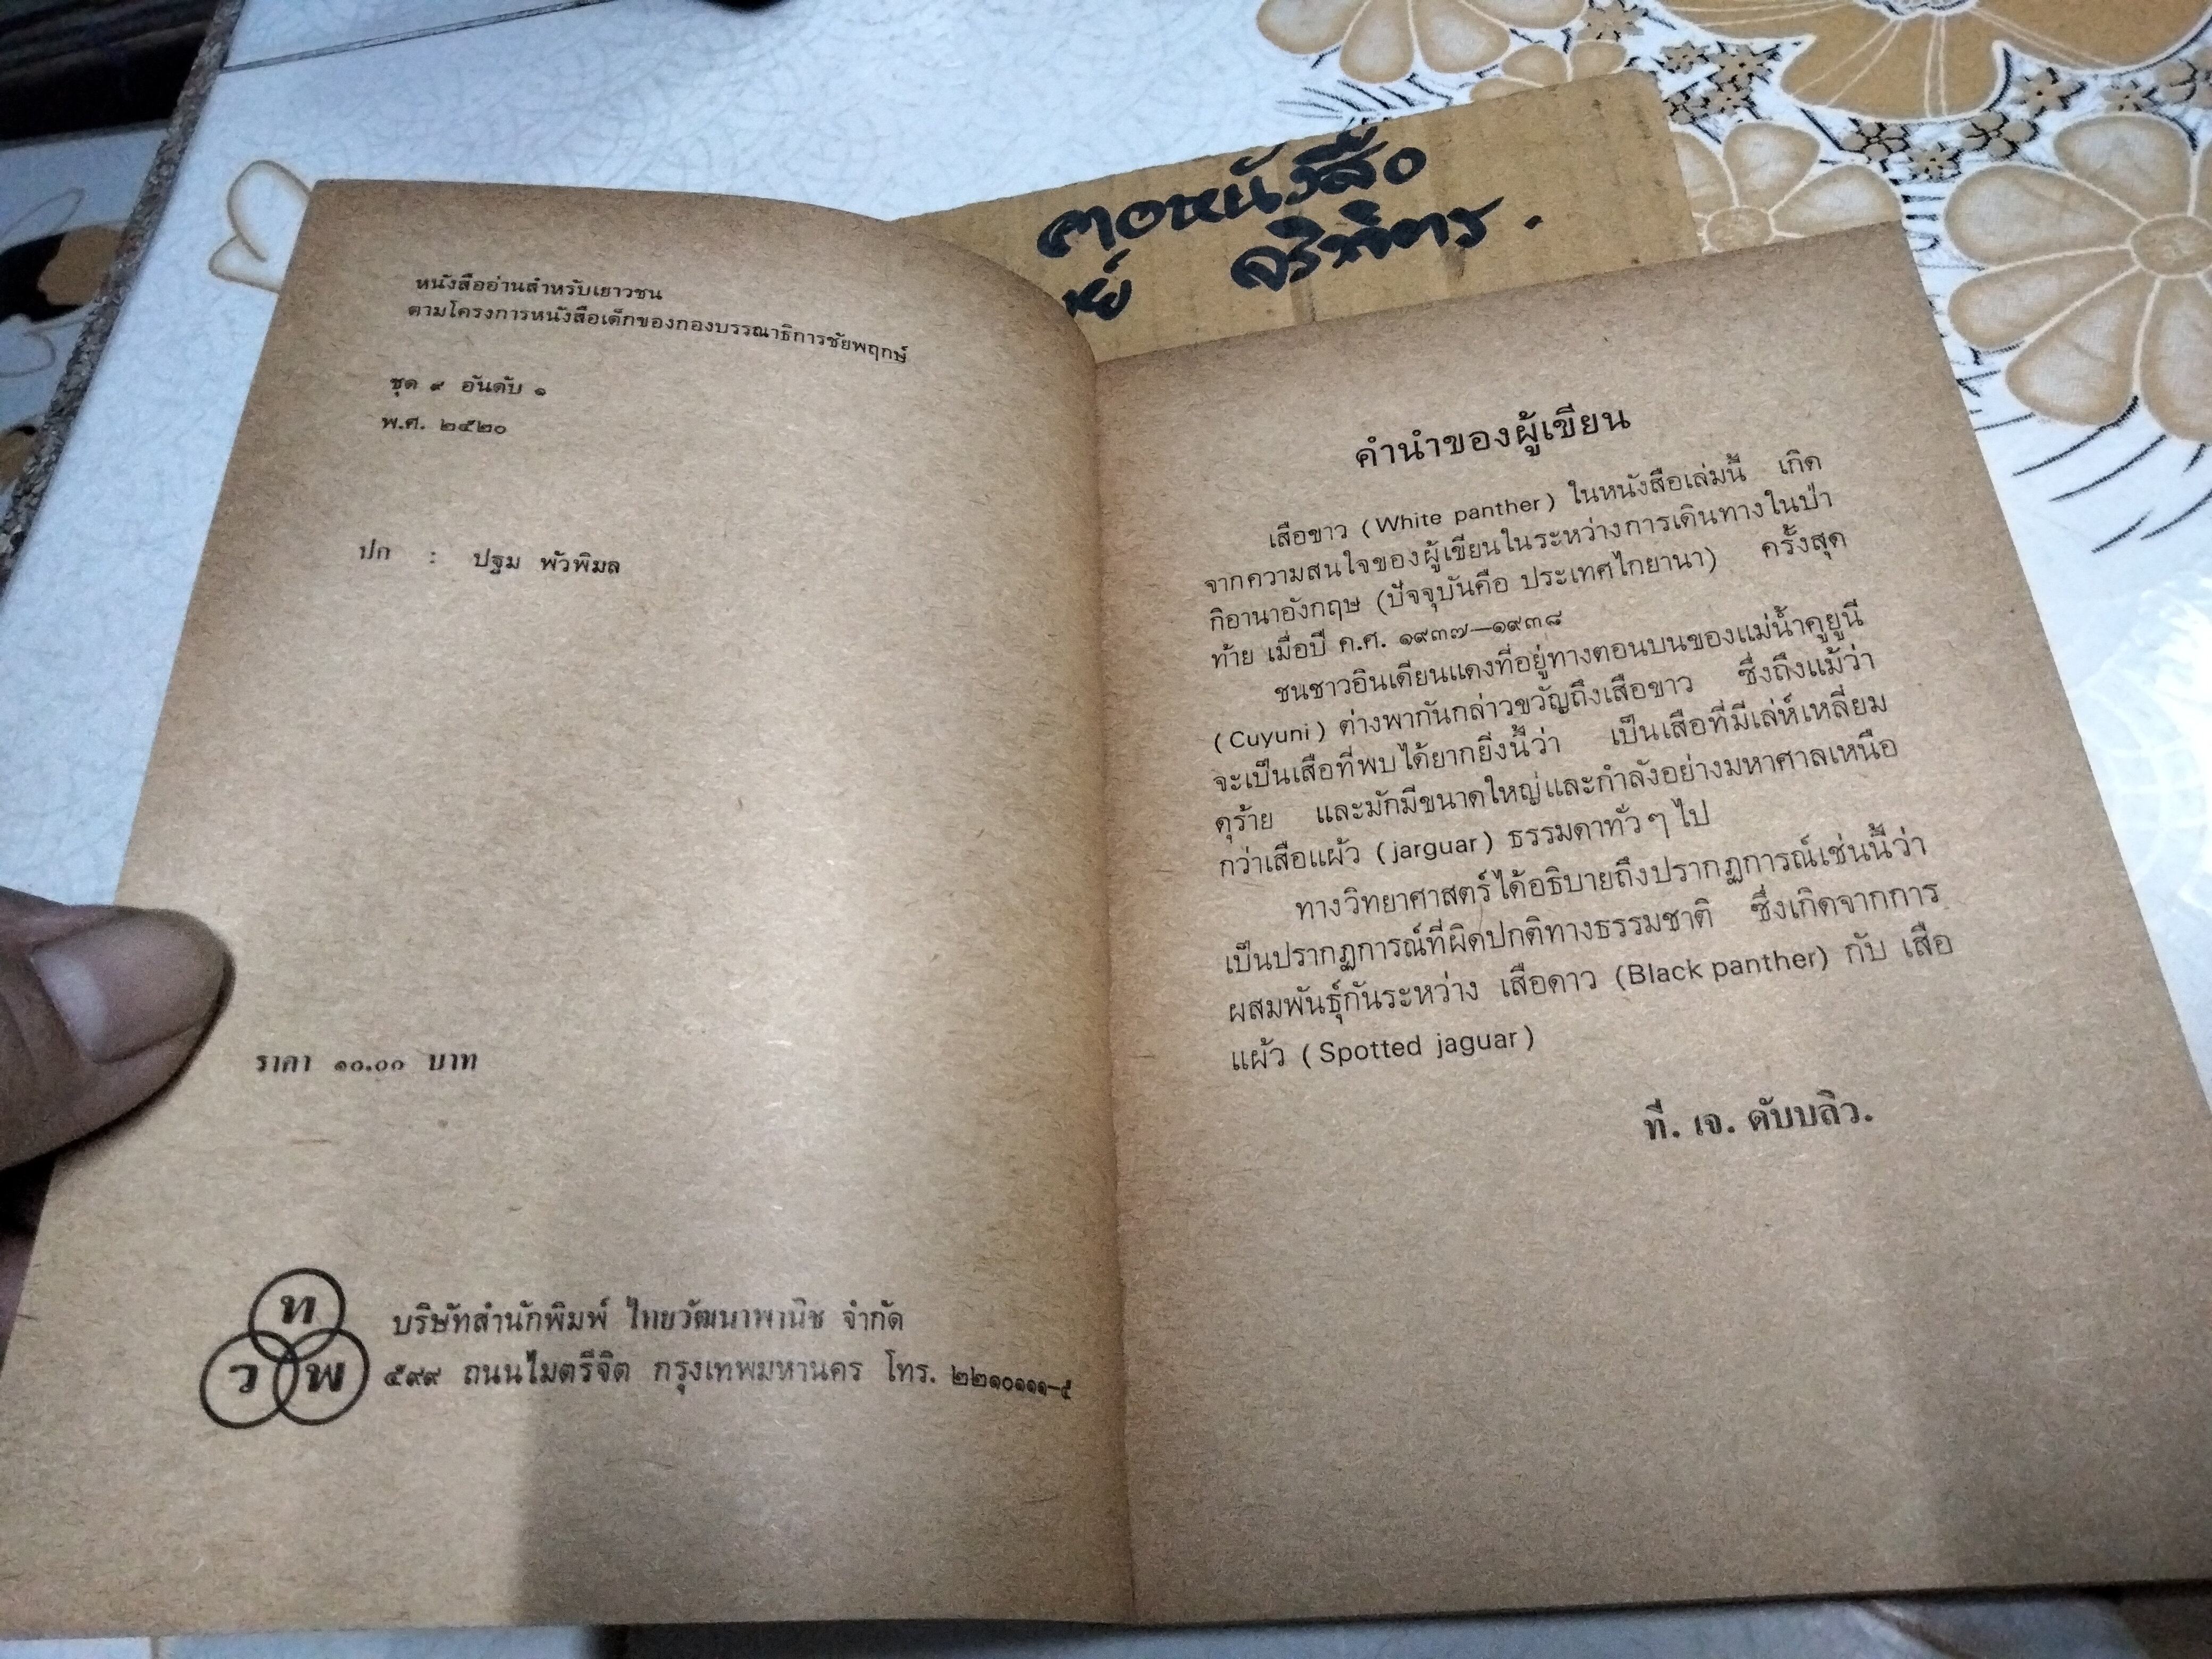 คอหนังสือ
หนังสืออ่านสำหรับเยาวชน
ตามโครงการหนังสือเด็กของกองบรรณาธิการชัยพฤกษ์
ชุด ๙ อันดับ ๑
พ.ศ. ๒๕๒๐
ปก : ปฐม พัวพิมล
ราคา ๑๐.๐๐ บาท
ท
ว พ
บริษัทสำนักพิมพ์ ไทยวัฒนาพานิช จำกัด
๕๙๙ ถนนไมตรีจิต กรุงเทพมหานคร โทร. ๒๒๑๐๑๑๑–๕
คำนำของผู้เขียน
เสือขาว (White panther) ในหนังสือเล่มนี้ เกิด
จากความสนใจของผู้เขียนในระหว่างการเดินทางในป่า
กิอานาอังกฤษ (ปัจจุบันคือ ประเทศไกยานา) ครั้งสุด
ท้าย เมื่อปี ค.ศ. ๑๙๓๗—๑๙๓๘
ชนชาวอินเดียนแดงที่อยู่ทางตอนบนของแม่น้ำคูยูนี
(Cuyuni) ต่างพากันกล่าวขวัญถึงเสือขาว ซึ่งถึงแม้ว่า
จะเป็นเสือที่พบได้ยากยิ่งนี้ว่า เป็นเสือที่มีเล่ห์เหลี่ยม
ดุร้าย และมักมีขนาดใหญ่และกำลังอย่างมหาศาลเหนือ
กว่าเสือแผ้ว (jarguar) ธรรมดาทั่วๆ ไป
ทางวิทยาศาสตร์ได้อธิบายถึงปรากฏการณ์เช่นนี้ว่า
เป็นปรากฏการณ์ที่ผิดปกติทางธรรมชาติ ซึ่งเกิดจากการ
ผสมพันธุ์กันระหว่าง เสือดาว (Black panther) กับ เสือ
แผ้ว (Spotted jaguar)
ที. เจ. ดับบลิว.